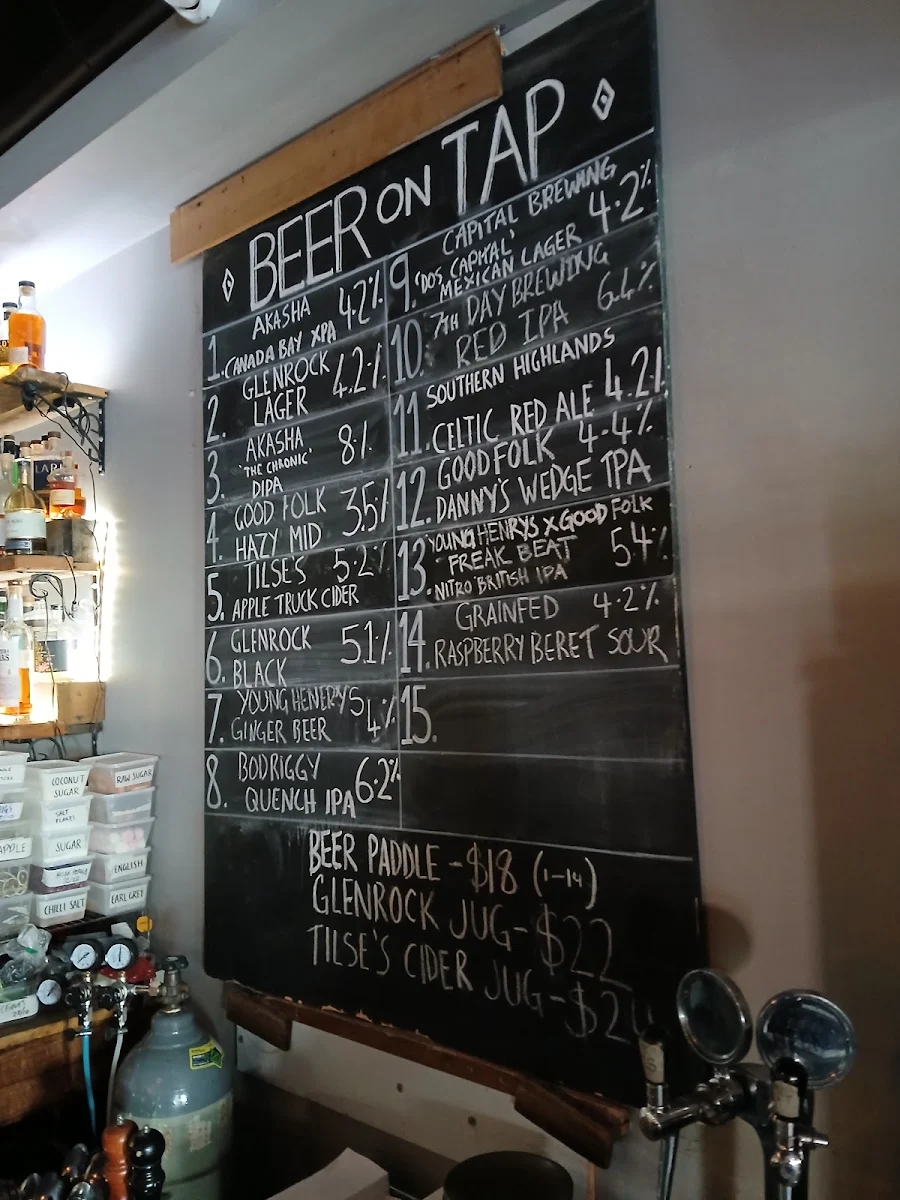 BEER ON TAP
1. AKASHA 4.2%
CANADA BAY XPA
2. GLENROCK 4.2%
LAGER
3. AKASHA 8%
'THE CHRONIC'
DIPA
4. GOOD FOLK 3.5%
HAZY MID
5. TILSE'S 5.2%
APPLE TRUCK CIDER
6. GLENROCK 5.1%
BLACK
7. YOUNG HENERYS 4%
GINGER BEER
8. BODRIGGY 6.2%
QUENCH IPA
9. CAPITAL BREWING 4.2%
'DOS CAPITAL'
MEXICAN LAGER
10. 7TH DAY BREWING
RED IPA
11. SOUTHERN HIGHLANDS
CELTIC RED ALE 4.2%
12. GOODFOLK 4.4%
DANNY'S WEDGE IPA
13. YOUNG HENRYS X GOOD FOLK
FREAK BEAT 5.4%
NITRO BRITISH IPA
14. GRAINFED 4.2%
RASPBERRY BERET SOUR
15.
BEER PADDLE - $18 (1-14)
GLENROCK JUG - $22
TILSE'S CIDER JUG - $24
COCONUT
SUGAR
RAW SUGAR
SALT
FLAKES
SUGAR
ENGLISH
CHILLI SALT
EARL GREY